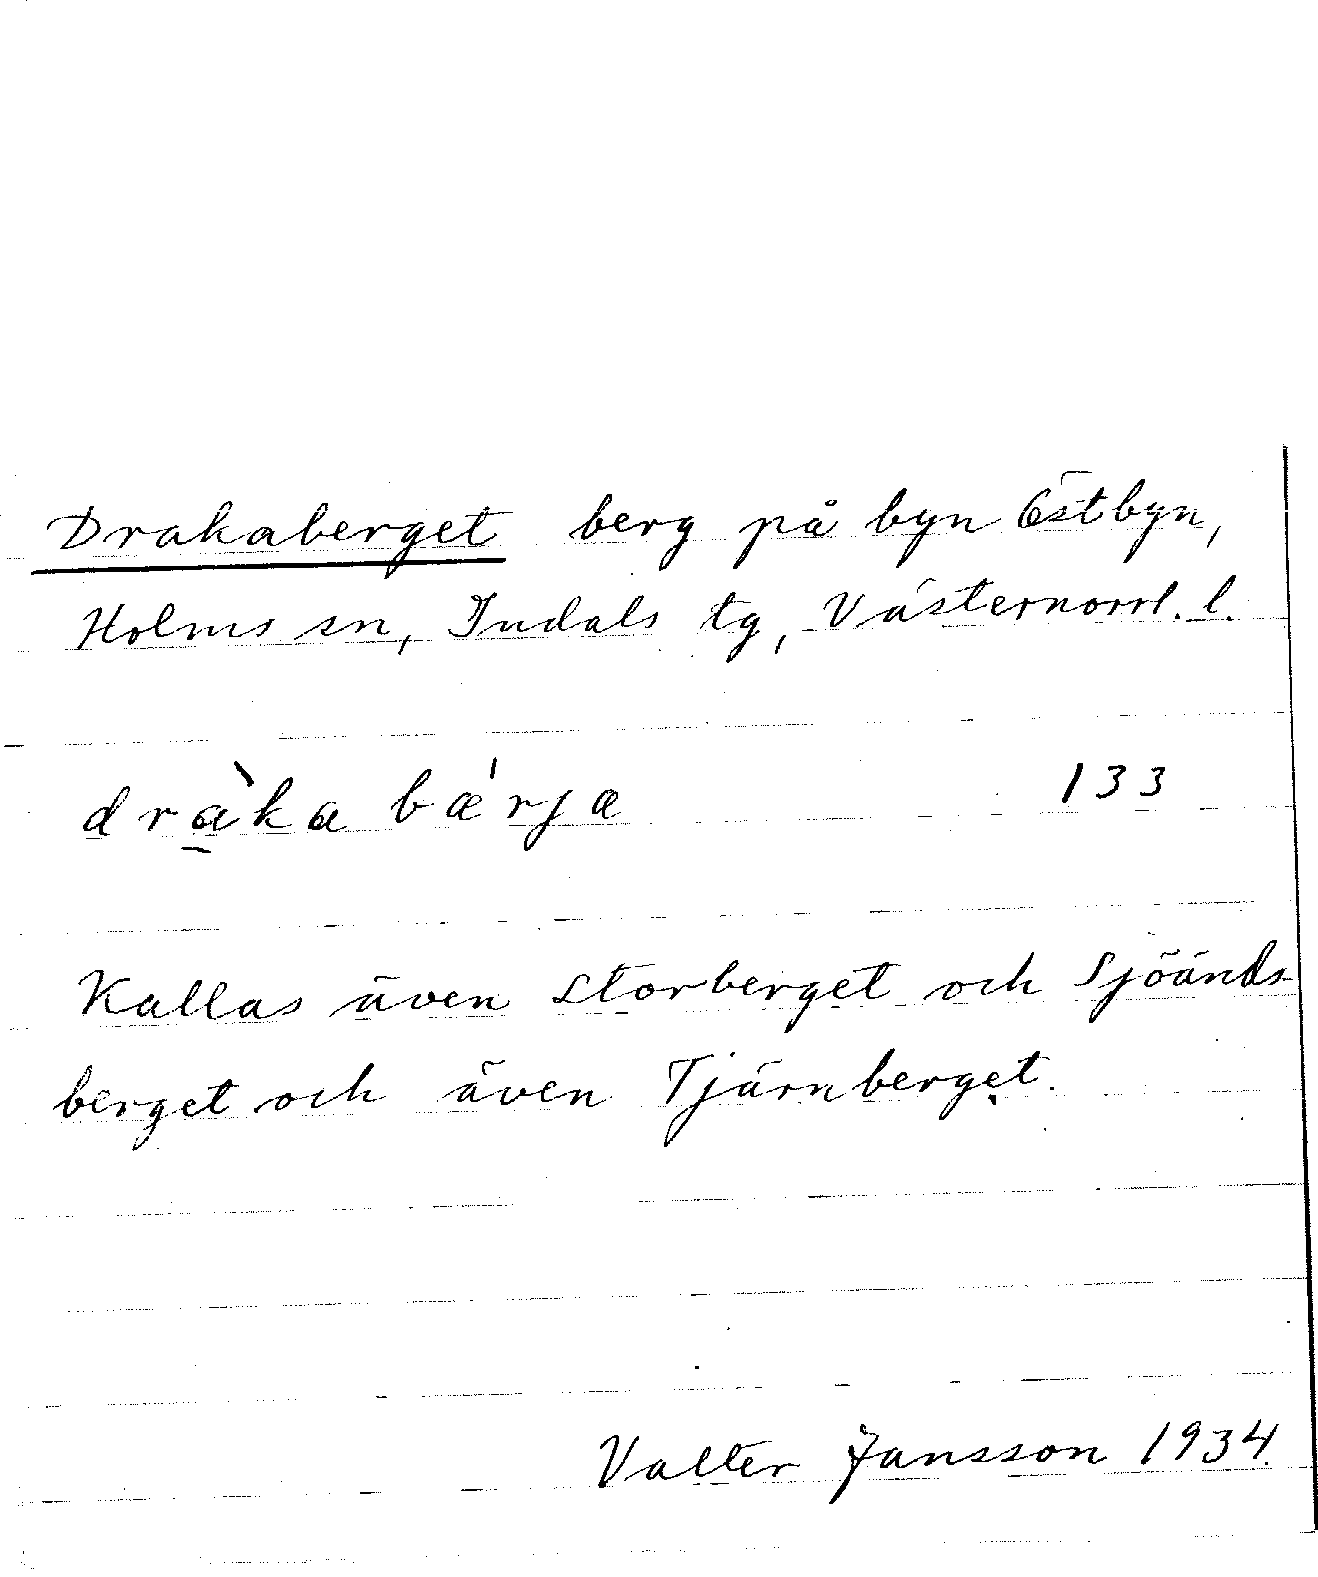 Drakaberget berg på byn Östbyn,
Holms sn, Indals tg, Västernorrl. l.
dràka bǽrja 133
Kallas även Storberget och Sjöänds-
berget och även Tjärnberget.
Valter Jansson 1934.